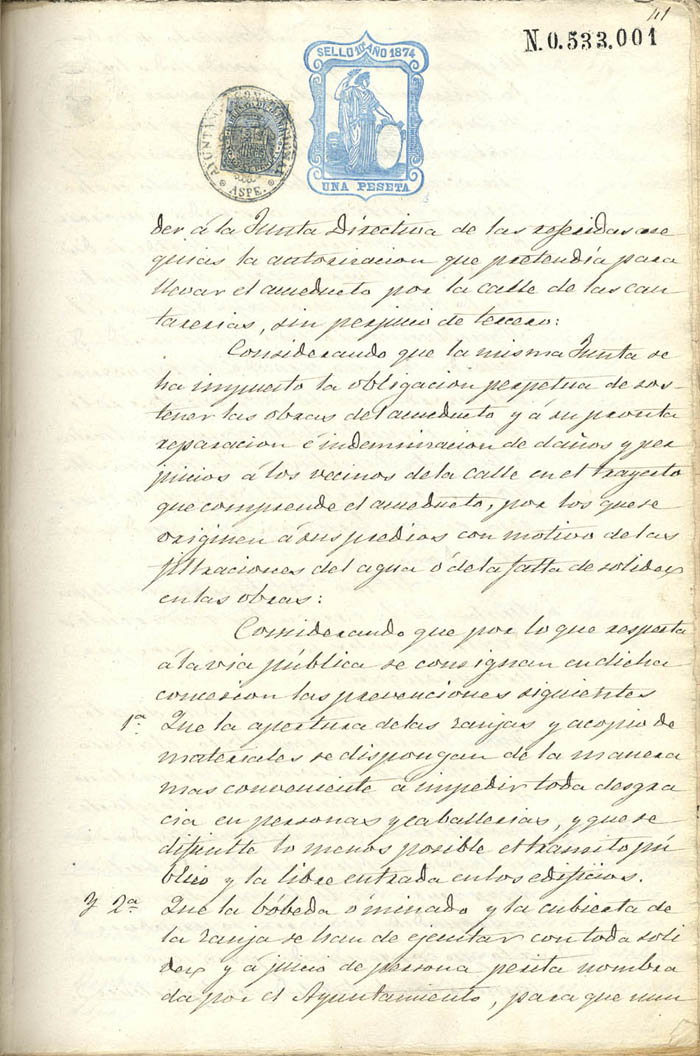 41
N.0.533.001
SELLO 10º AÑO 1874
UNA PESETA
AYUNTAMIENTO CONSTITUCIONAL
ASPE.
der á la Junta Directiva de las referidas ace
quias la autorizacion que pretendia para
llevar el acueducto por la calle de las can
tarerias, sin perjuicio de tercero:
Considerando que la misma Junta se
ha impuesto la obligacion perpetua de sos-
tener las obras del acueducto y á su pronta
reparacion é indemnizacion de daños y per
juicios á los vecinos de la calle en el trayecto
que comprende el acueducto, por los que se
originen á sus predios con motivo de las
filtraciones del agua ó de la falta de solidez
en las obras:
Considerando que por lo que respecta
á la via pública se consignan en dicha
concesion las prevenciones siguientes
1ª Que la apertura de las zanjas y acopio de
materiales se dispongan de la manera
mas conveniente á impedir toda desgra
cia en personas y caballerias, y que se
dificulte lo menos posible el tránsito pú
blico y la libre entrada en los edificios.
y 2ª Que la bóbeda ó minado y la cubierta de
la zanja se han de ejecutar con toda soli
dez y á juicio de persona perita nombra
da por el Ayuntamiento, para que nun